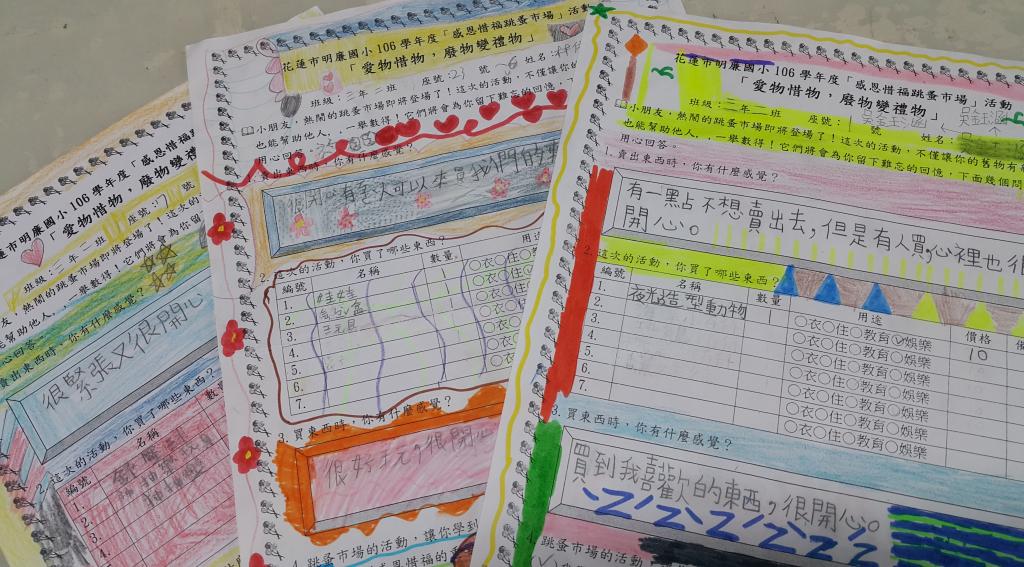 花蓮市明廉國小106學年度「感恩惜福跳蚤市場」活動
「愛物惜物,廢物變禮物」
班級:三年二班 座號:1號 姓名:
小朋友,熱鬧的跳蚤市場即將登場了!這次的活動,不僅讓你的舊物有
也能幫助他人,一舉數得!它們將會為你留下難忘的回憶,下面幾個問
用心回答。
1. 賣出東西時,你有什麼感覺?
有一點不想賣出去,但是有人買,心裡也很
開心。
2. 這次的活動,你買了哪些東西?
編號 名稱 數量 用途 價格
1. 夜光造型動物 1 ○衣○住○教育○娛樂 10
2. ○衣○住○教育○娛樂
3. ○衣○住○教育○娛樂
4. ○衣○住○教育○娛樂
5. ○衣○住○教育○娛樂
6. ○衣○住○教育○娛樂
7. ○衣○住○教育○娛樂
3. 買東西時,你有什麼感覺?
買到我喜歡的東西,很開心。
4. 跳蚤市場的活動
花蓮市明廉國小106學年度「感恩惜福跳蚤市場」活動
「愛物惜物,廢物變禮物」
班級:三年二班 座號: 號 姓名:
小朋友,熱鬧的跳蚤市場即將登場了!這次的活動,不僅讓你的
也能幫助他人,一舉數得!它們將會為你留下難忘的回憶
用心回答。
賣出東西時,你有什麼感覺?
2. 這次的活動,你買了哪些東西?
編號 名稱 數量 用途
1. 娃娃 1 ○衣○住
2. ○衣○住
3. ○衣○住
4. ○衣○
5. ○衣
6. ○衣
7. ○衣
3. 買東西時,你有什麼感覺?
很好玩,很開心
4. 跳蚤市場的活動,讓你學到
感恩惜福的
蓮市明廉國小106學年度「感恩惜福
「愛物惜物,廢物變禮物
班級:三年二班 座號:
友,熱鬧的跳蚤市場即將登場了!這次的
助他人,一舉數得!它們將會為
心回答。
賣出東西時,你有什麼感覺?
很緊張又很開心
2. 這次的活動,你買了哪些東西?
編號 名稱 數
1.
2.
3.
4.